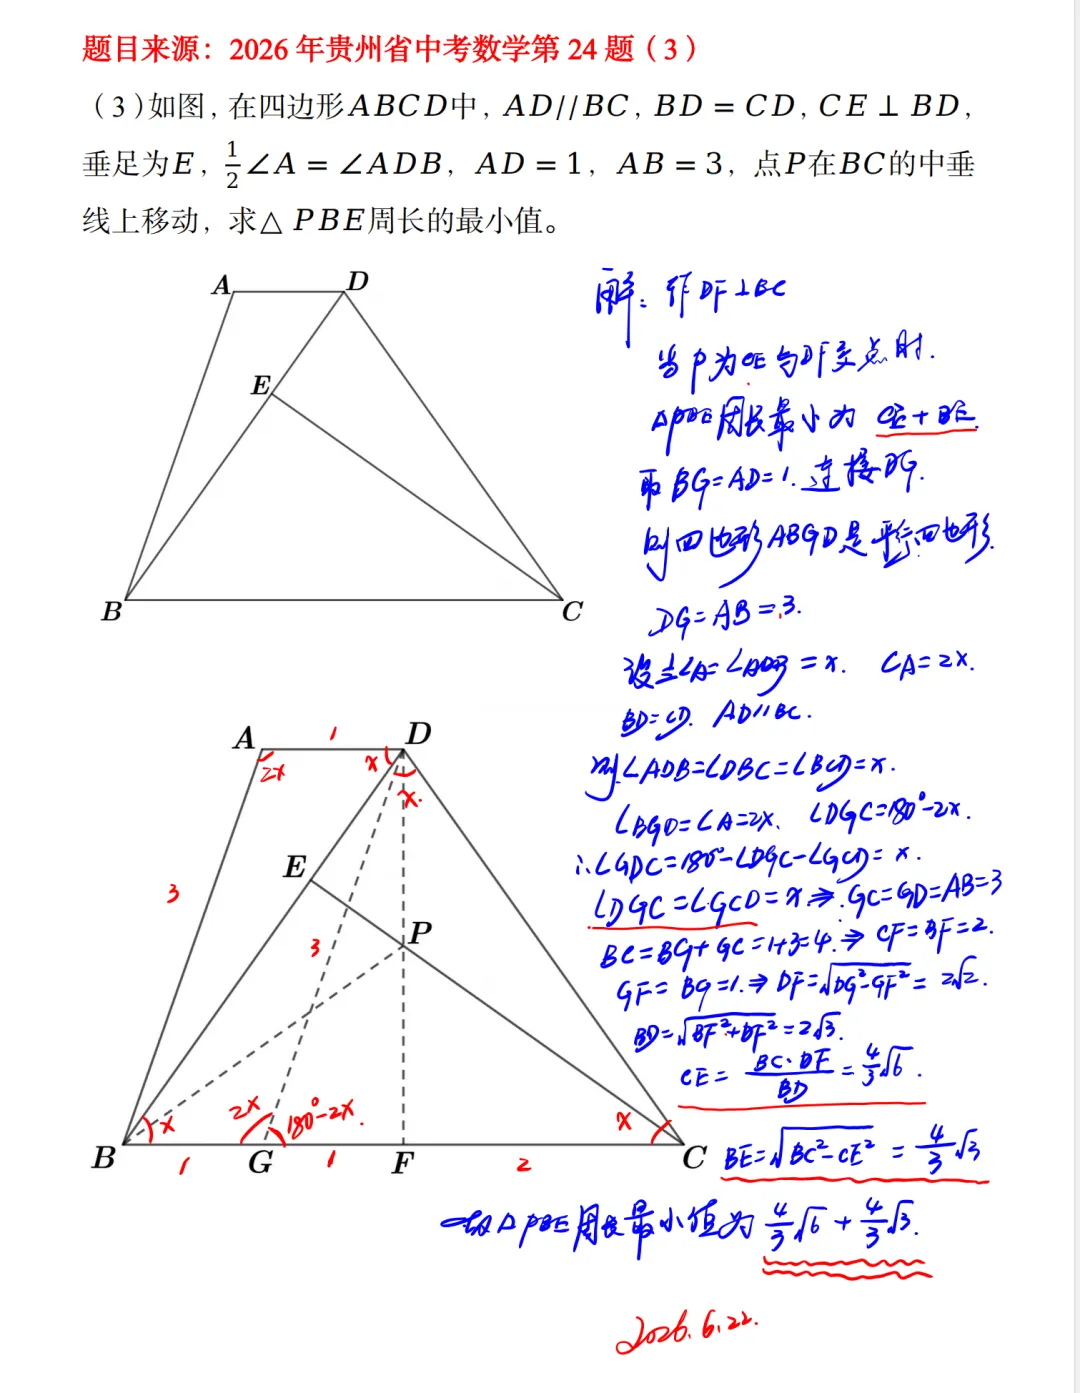 题目来源：2026年贵州省中考数学第24题（3）
（3）如图，在四边形ABCD中，AD//BC，BD = CD，CE ⊥ BD，
垂足为E，1/2∠A = ∠ADB，AD = 1，AB = 3，点P在BC的中垂
线上移动，求△ PBE周长的最小值。
A
D
E
B
C
解：作DF⊥BC
当P为CE与DF交点时.
△PBE周长最小为 CE+BE.
取BG=AD=1.连接DG.
则四边形ABGD是平行四边形.
DG=AB=3.
设1/2∠A=∠ADB=x. ∠A=2x.
BD=CD. AD//BC.
则∠ADB=∠DBC=∠BCD=x.
∠BGD=∠A=2x. ∠DGC=180°-2x.
∴∠GDC=180°-∠DGC-∠GCD=x.
∠DGC=∠GCD=x.⇒GC=GD=AB=3
BC=BG+GC=1+3=4.⇒CF=BF=2.
GF=BG=1.⇒DF=√(DG²-GF²)=2√2.
BD=√(BF²+DF²)=2√3.
CE=BC·DF/BD=4/3√6.
BE=√(BC²-CE²)=4/3√3
故△PBE周长最小值为4/3√6+4/3√3.
A
1
D
2x
x
x.
E
3
3
P
x
2x
180°-2x.
x
B
1
G
1
F
2
C
2026.6.22.